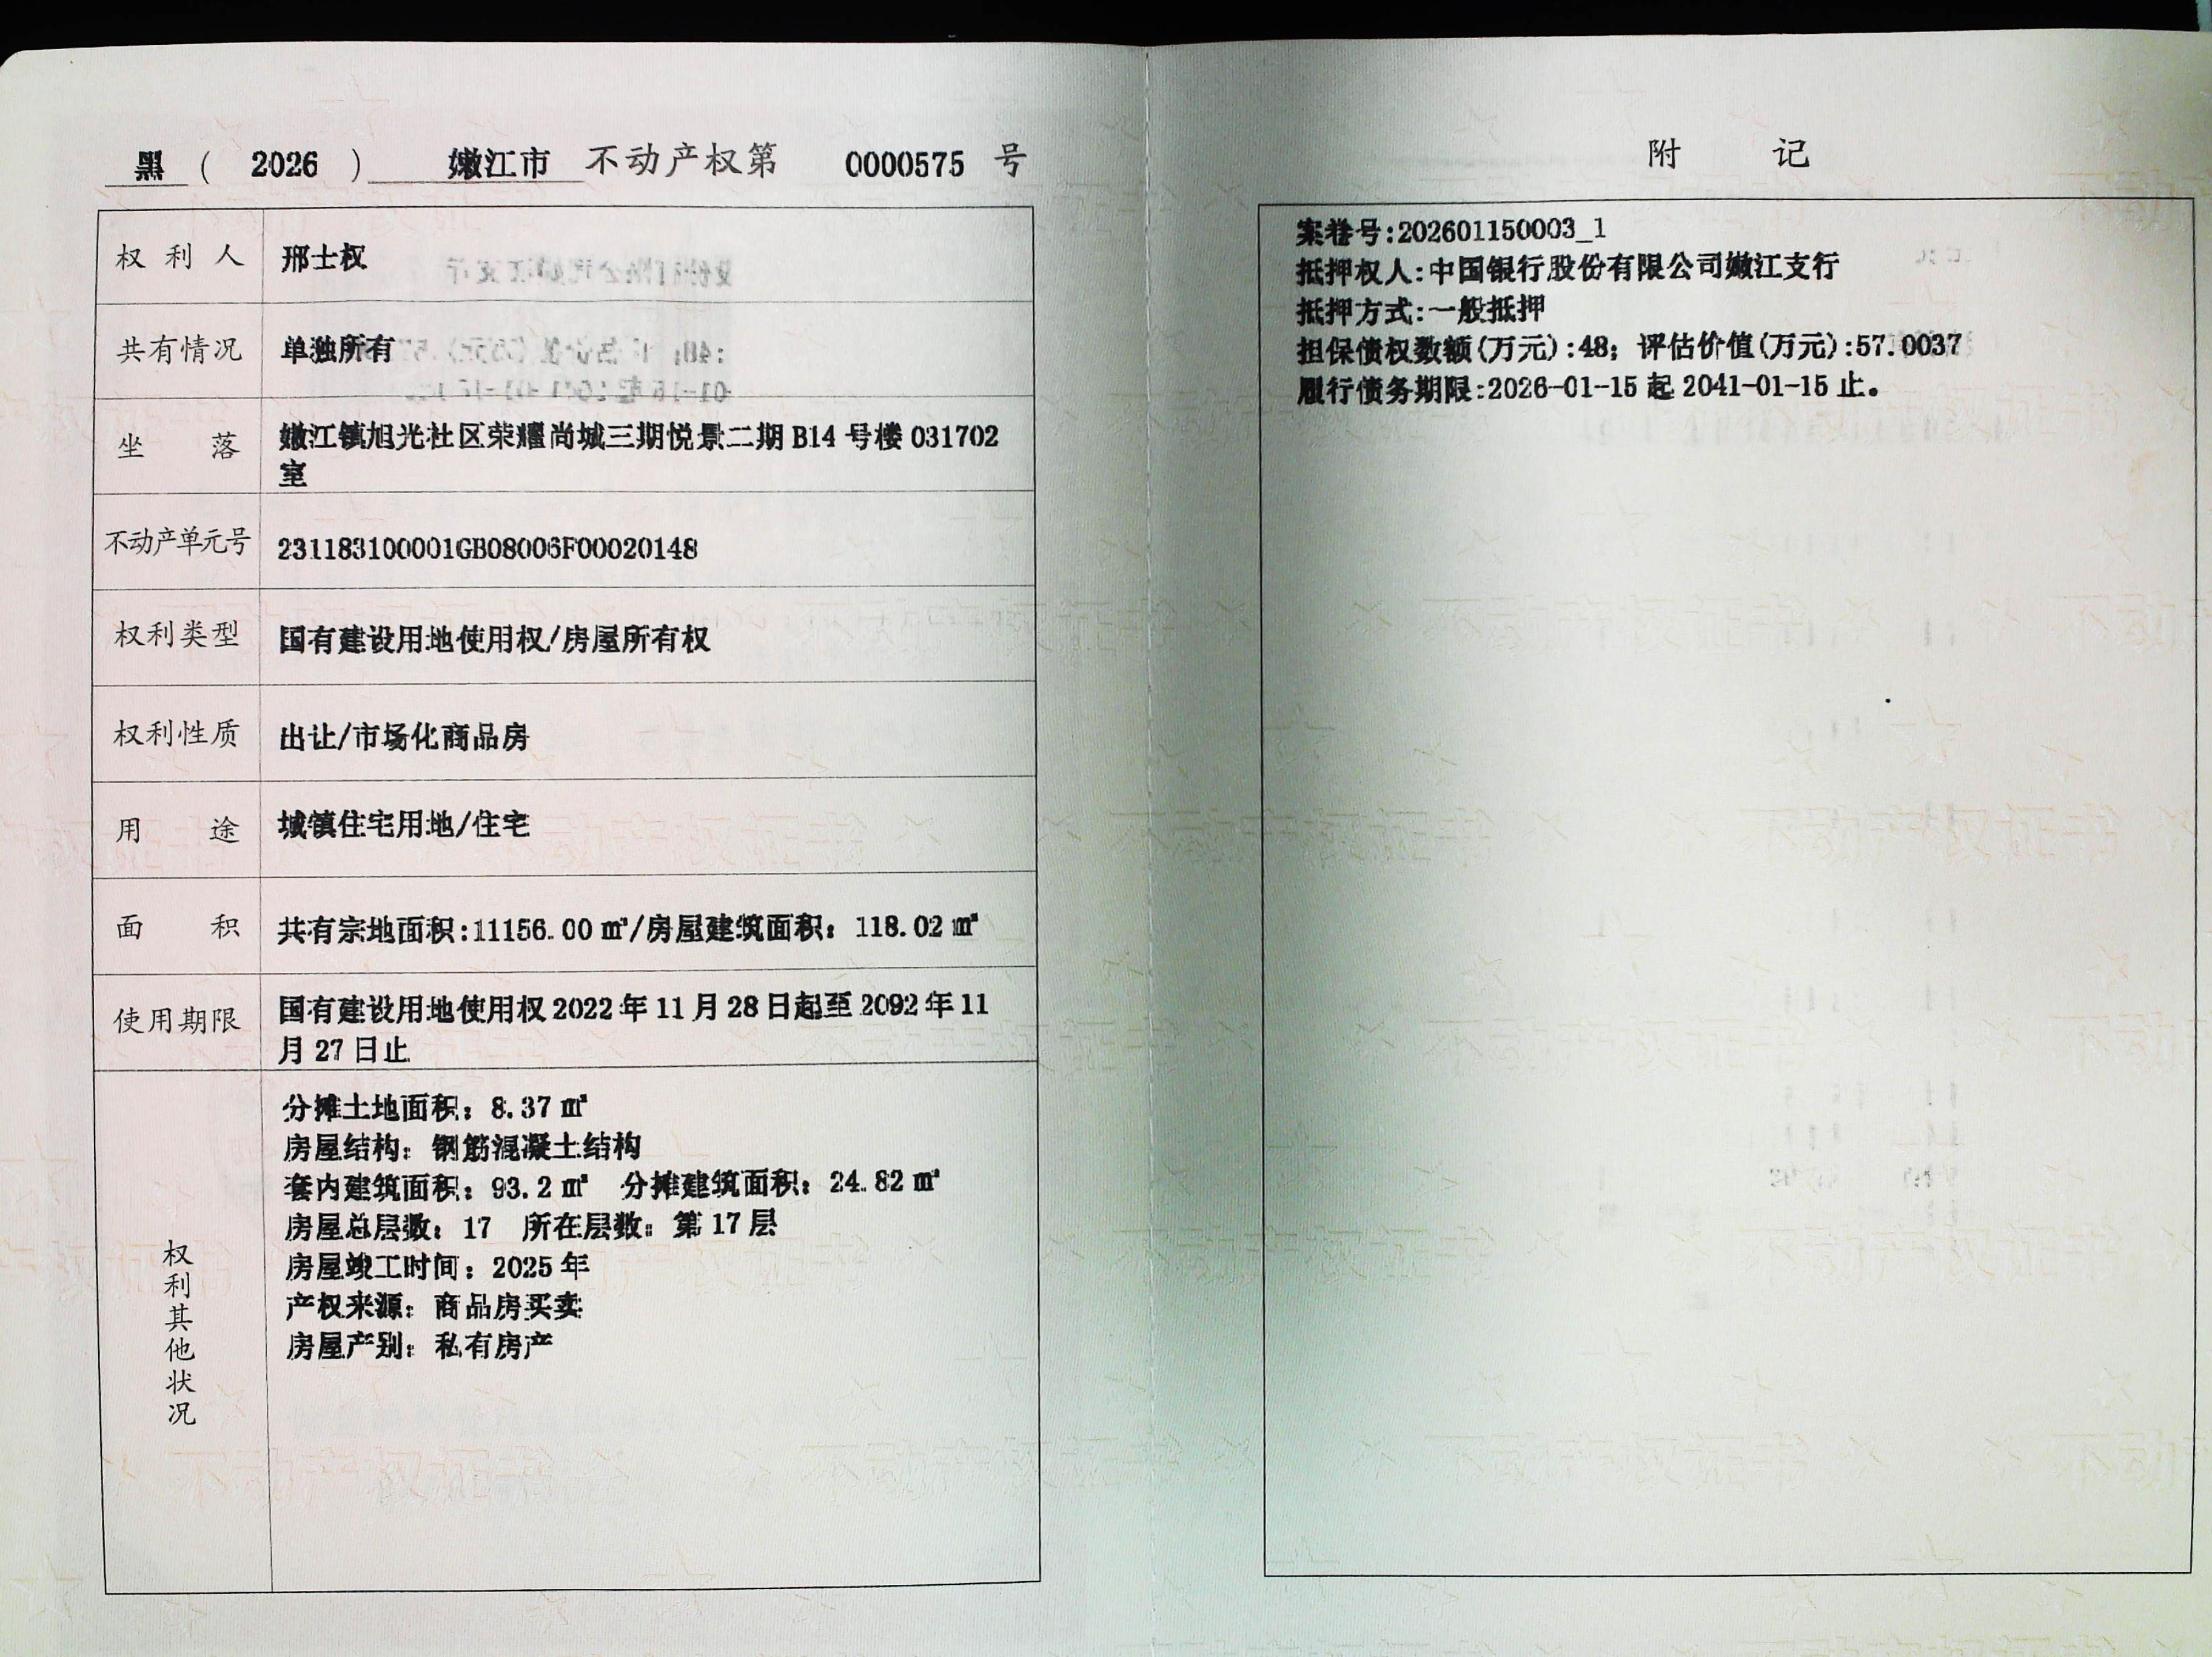 黑 ( 2026 ) 嫩江市 不动产权第 0000575 号
权利人 邢士权
共有情况 单独所有
坐落 嫩江镇旭光社区荣耀尚城三期悦景二期 B14 号楼 031702
室
不动产单元号 231183100001GB08006F00020148
权利类型 国有建设用地使用权/房屋所有权
权利性质 出让/市场化商品房
用途 城镇住宅用地/住宅
面积 共有宗地面积:11156.00 ㎡/房屋建筑面积：118.02 ㎡
使用期限 国有建设用地使用权 2022 年 11 月 28 日起至 2092 年 11
月 27 日止
权利其他状况
分摊土地面积：8.37 ㎡
房屋结构：钢筋混凝土结构
套内建筑面积：93.2 ㎡ 分摊建筑面积：24.82 ㎡
房屋总层数：17 所在层数：第 17 层
房屋竣工时间：2025 年
产权来源：商品房买卖
房屋产别：私有房产
附记
案卷号:202601150003_1
抵押权人:中国银行股份有限公司嫩江支行
抵押方式:一般抵押
担保债权数额(万元):48；评估价值(万元):57.0037
履行债务期限:2026-01-15 起 2041-01-15 止。